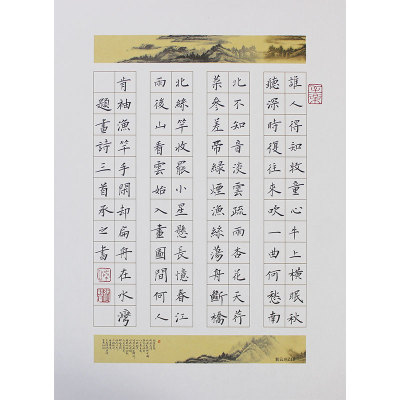 誰人得知牧童心牛上橫眠秋
聽深時復往來吹一曲何愁南
北不知音淡雲疏雨杏花天荷
葉參差帶綠煙漁絲蕩舟斷橋
北絲竿收罷小星懸長憶春江
雨後山看雲始入畫圖間何人
肯袖漁竿手閑却扁舟在水灣
題畫詩三首承之書